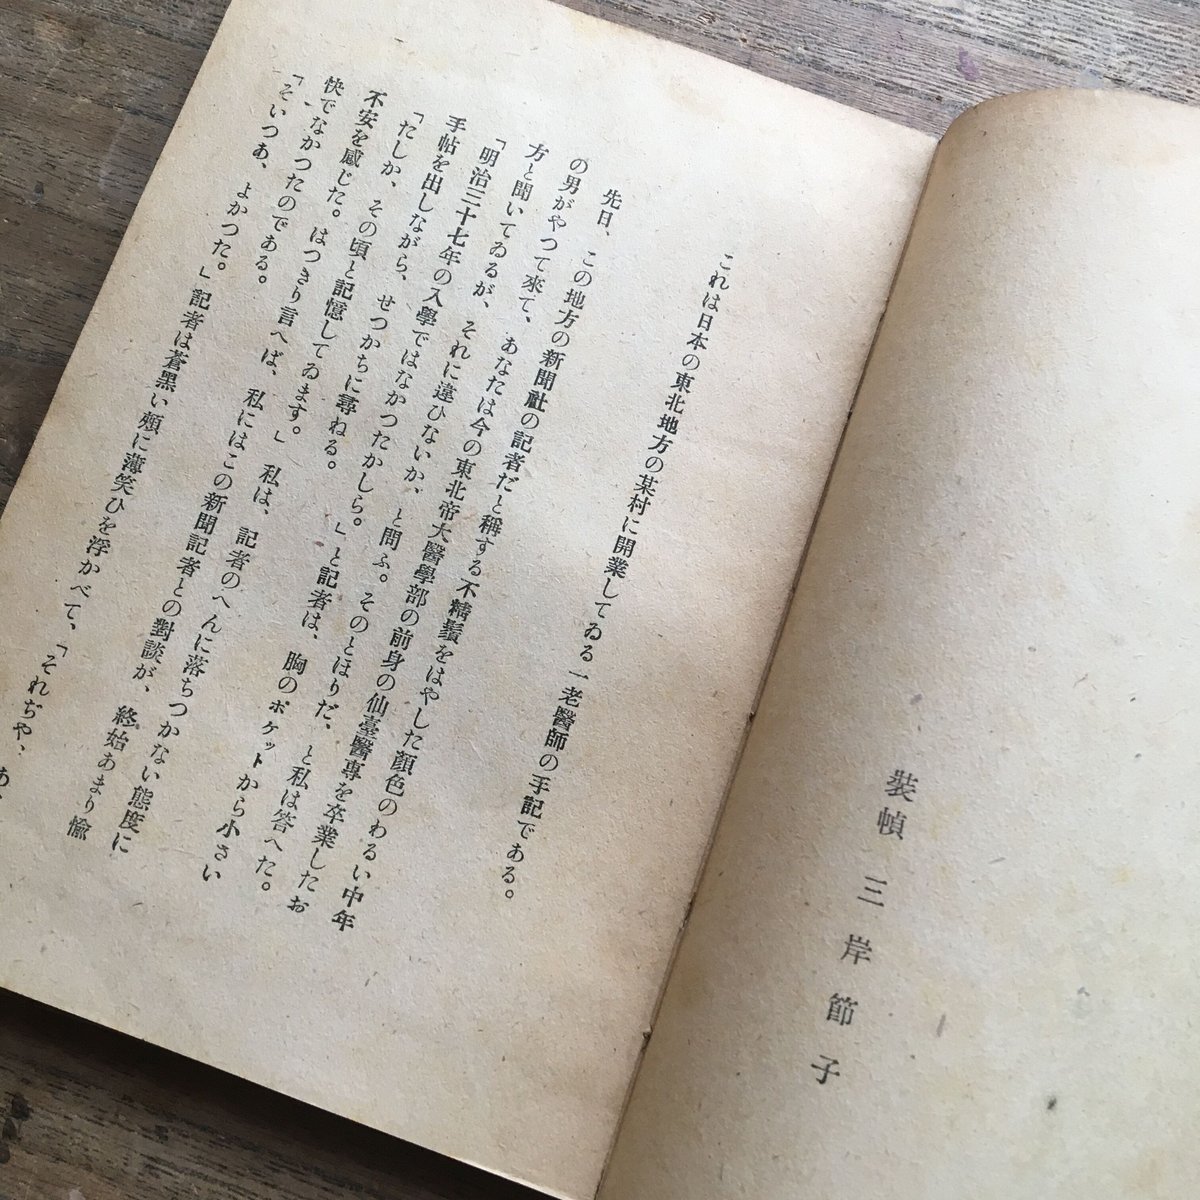 裝幀 三岸節子
これは日本の東北地方の某村に開業してゐる一老醫師の手記である。
先日、この地方の新聞社の記者だと稱する不精鬚をはやした顏色のわるい中年
の男がやつて來て、あなたは今の東北帝大醫學部の前身の仙臺醫專を卒業したお
方と聞いてゐるが、それに違ひないか、と問ふ。そのとほりだ、と私は答へた。
「明治三十七年の入學ではなかつたかしら。」と記者は、胸のポケットから小さい
手帖を出しながら、せつかちに尋ねる。
「たしか、その頃と記憶してゐます。」私は、記者のへんに落ちつかない態度に
不安を感じた。はつきり言へば、私にはこの新聞記者との對談が、終始あまり愉
快でなかつたのである。
「そいつあ、よかつた。」記者は蒼黑い頰に薄笑ひを浮かべて、「それぢや、あ